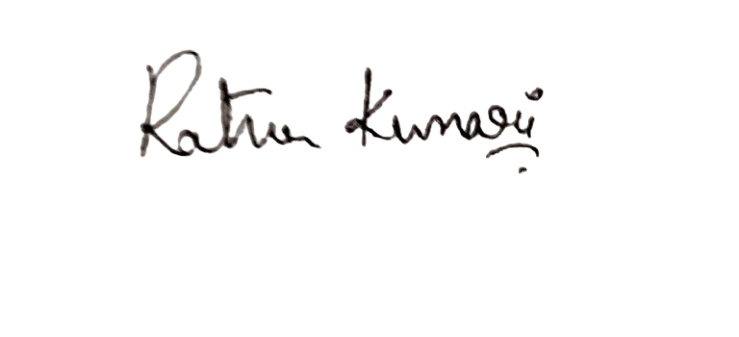 Ratna Kumari